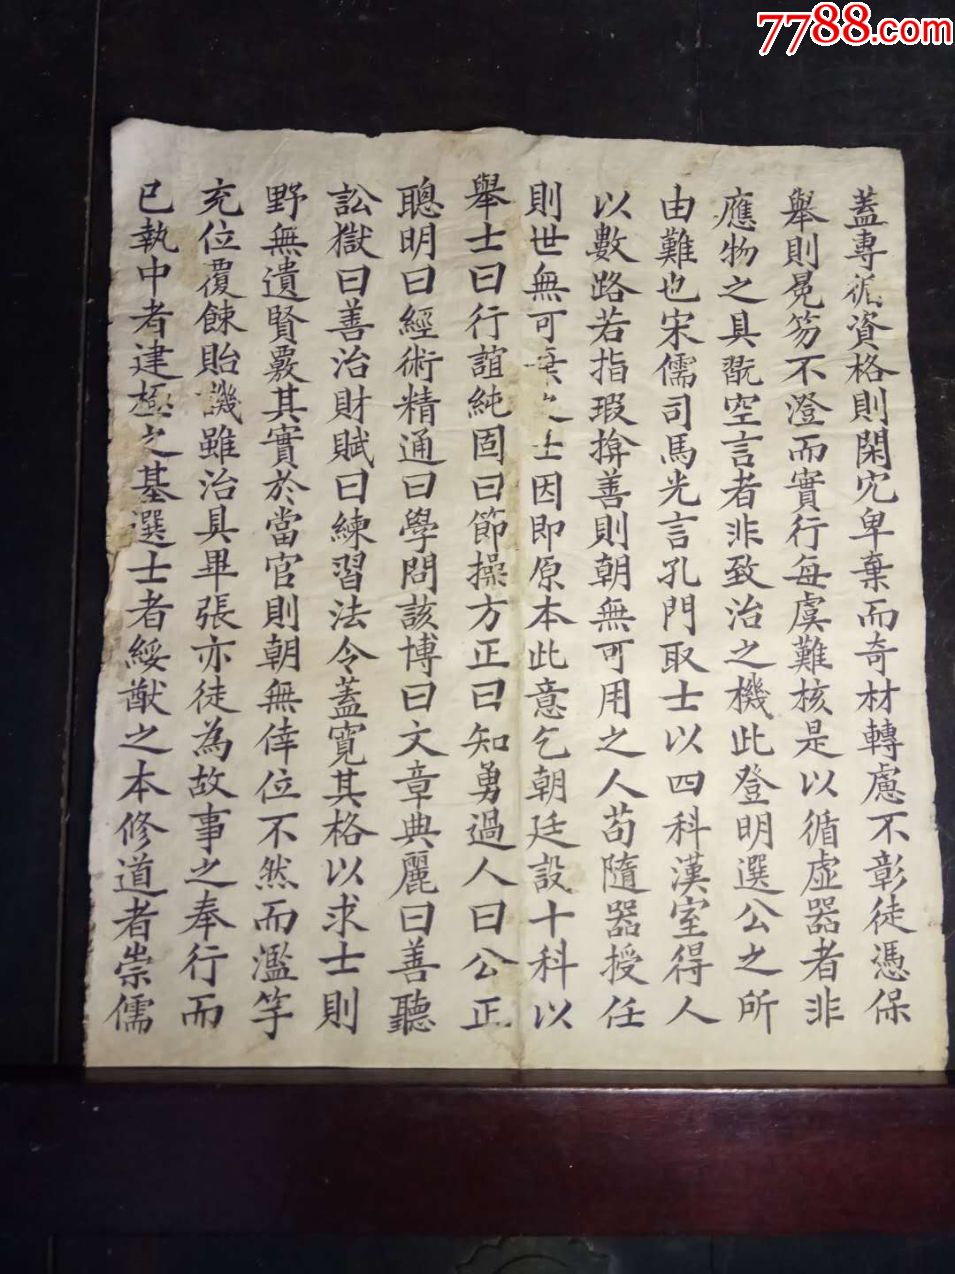 7788.com
蓋專循資格則閑冗卑棄而奇材轉慮不彰徒憑保
舉則冕笏不澄而實行每虞難核是以循虛器者非
應物之具翫空言者非致治之機此登明選公之所
由難也宋儒司馬光言孔門取士以四科漢室得人
以數路若指瑕揜善則朝無可用之人苟隨器授任
則世無可棄之士因即原本此意乞朝廷設十科以
舉士曰行誼純固曰節操方正曰知勇過人曰公正
聰明曰經術精通曰學問該博曰文章典麗曰善聽
訟獄曰善治財賦曰練習法令蓋寬其格以求士則
野無遺賢覈其實於當官則朝無倖位不然而濫竽
充位覆餗貽譏雖治具畢張亦徒為故事之奉行而
已執中者建極之基選士者綏猷之本修道者崇儒